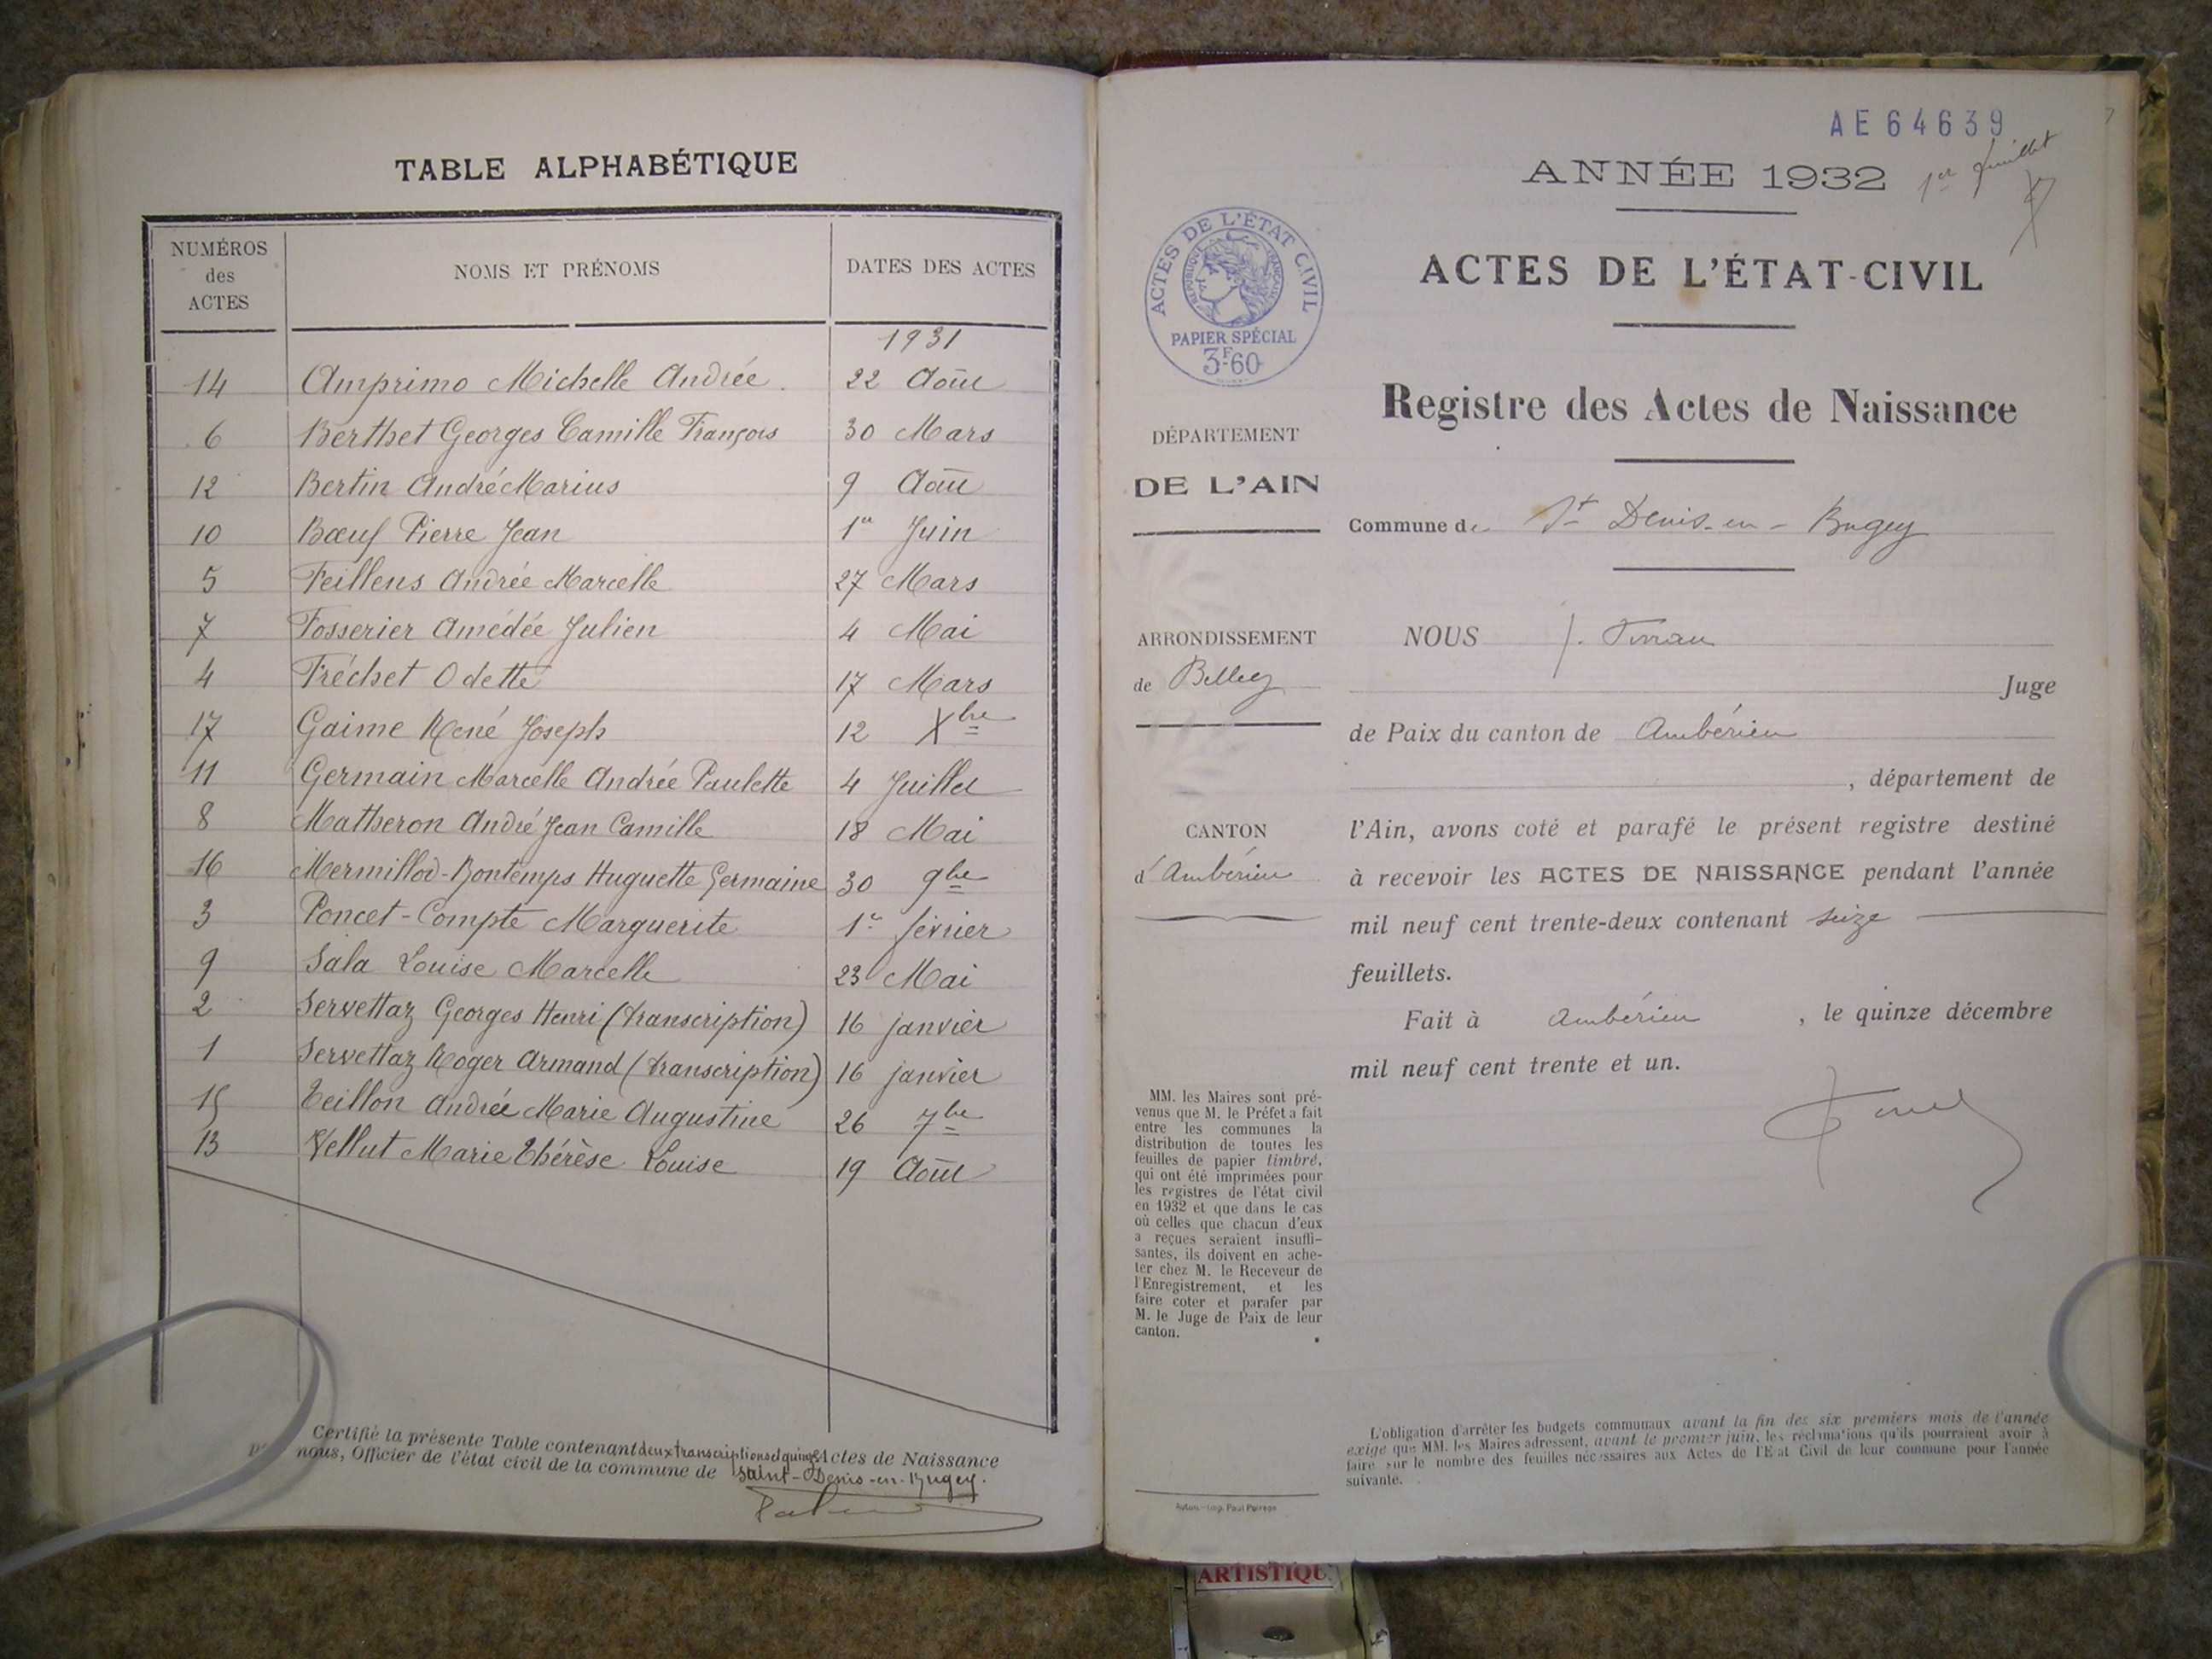 TABLE ALPHABÉTIQUE
NUMÉROS des ACTES NOMS ET PRÉNOMS DATES DES ACTES
1931
14 Amprimo Michelle Andrée. 22 Août
6 Berthet Georges Camille François 30 Mars
12 Bertin André Marius 9 Août
10 Bœuf Pierre Jean 1er Juin
5 Feillens Andrée Marcelle 27 Mars
7 Fosserier Amédée Julien 4 Mai
4 Fréchet Odette 17 Mars
17 Gaime René Joseph 12 Xbre
11 Germain Marcelle Andrée Paulette 4 Juillet
8 Matheron André Jean Camille 18 Mai
16 Mermillod-Bontemps Huguette Germaine 30 9bre
3 Poncet-Compte Marguerite 1er février
9 Sala Louise Marcelle 23 Mai
2 Servettaz Georges Henri (transcription) 16 janvier
1 Servettaz Roger Armand (transcription) 16 janvier
15 Teillon Andrée Marie Augustine 26 7bre
13 Vellut Marie Thérèse Louise 19 Août
Certifié la présente Table contenant deux transcriptions et quinze Actes de Naissance
nous, Officier de l'état civil de la commune de Saint-Denis-en-Bugey.
AE 64639
ANNÉE 1932 1er Juillet
ACTES DE L'ÉTAT CIVIL
RÉPUBLIQUE FRANÇAISE
PAPIER SPÉCIAL
3F60
ACTES DE L'ÉTAT-CIVIL
Registre des Actes de Naissance
DÉPARTEMENT
DE L'AIN
Commune de St Denis-en-Bugey
ARRONDISSEMENT
de Belley
CANTON
d'Ambérieu
MM. les Maires sont pré-
venus que M. le Préfet a fait
entre les communes la
distribution de toutes les
feuilles de papier timbré,
qui ont été imprimées pour
les registres de l'état civil
en 1932 et que dans le cas
où celles que chacun d'eux
a reçues seraient insuffi-
santes, ils doivent en ache-
ter chez M. le Receveur de
l'Enregistrement, et les
faire coter et parafer par
M. le Juge de Paix de leur
canton.
NOUS J.
Juge
de Paix du canton de Ambérieu
, département de
l'Ain, avons coté et parafé le présent registre destiné
à recevoir les ACTES DE NAISSANCE pendant l'année
mil neuf cent trente-deux contenant seize
feuillets.
Fait à Ambérieu, le quinze décembre
mil neuf cent trente et un.
L'obligation d'arrêter les budgets communaux avant la fin des six premiers mois de l'année
exige que MM. les Maires adressent, avant le premier juin, les réclamations qu'ils pourraient avoir à
faire sur le nombre des feuilles nécessaires aux Actes de l'Etat Civil de leur commune pour l'année
suivante.
ARTISTIQU